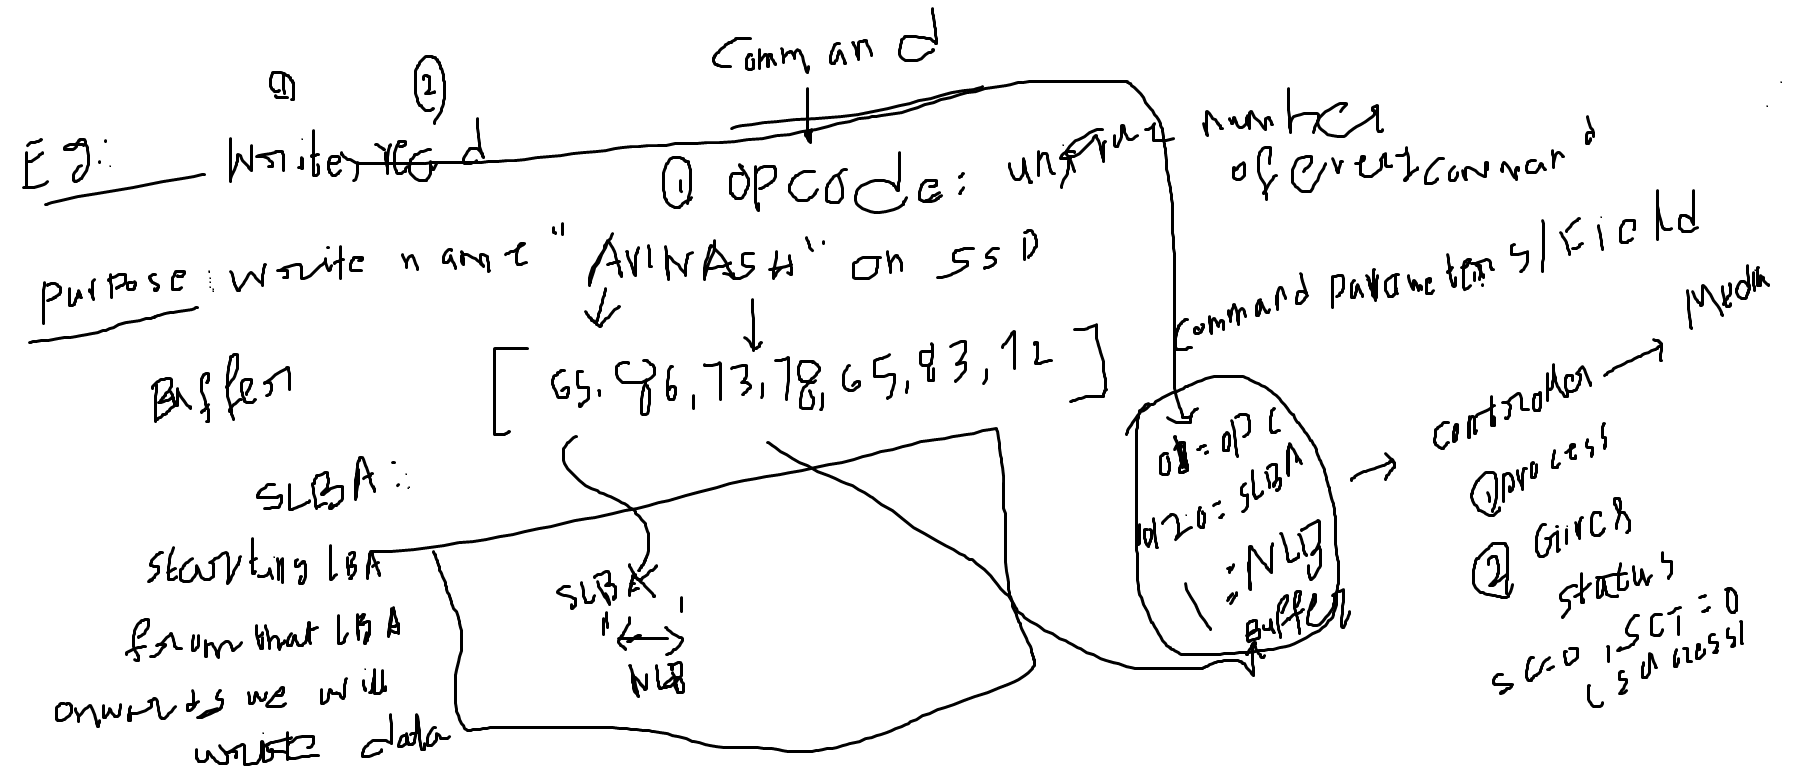 Command
① ②
Eg: Write, read
① OPCode: unique number
of every command
Purpose: write name "AVINASH" on SSD
Command Parameters/Field
Buffer [65, 86, 73, 78, 65, 83, 72]
SLBA:
starting LBA
from that LBA
onwards we will
write data
SLBA
NLB
01 = OPC
= SLBA
: NLB
Buffer
controller → Media
① process
② Gives
status
SC=0, SCT=0